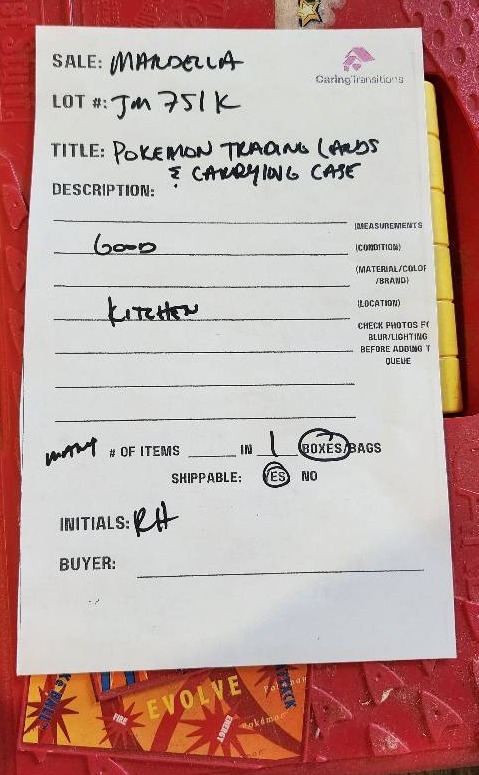 SALE: MARDELLA
CaringTransitions
LOT #: JM751K
TITLE: POKEMON TRADING CARDS
& CARRYING CASE
DESCRIPTION:
(MEASUREMENTS
GOOD (CONDITION)
(MATERIAL/COLOR
/BRAND)
KITCHEN (LOCATION)
CHECK PHOTOS FO
BLUR/LIGHTING
BEFORE ADDING T
QUEUE
MANY # OF ITEMS IN 1 BOXES/BAGS
SHIPPABLE: YES NO
INITIALS: RH
BUYER:
EVOLVE
FIRE
ENERGY
Pokémon